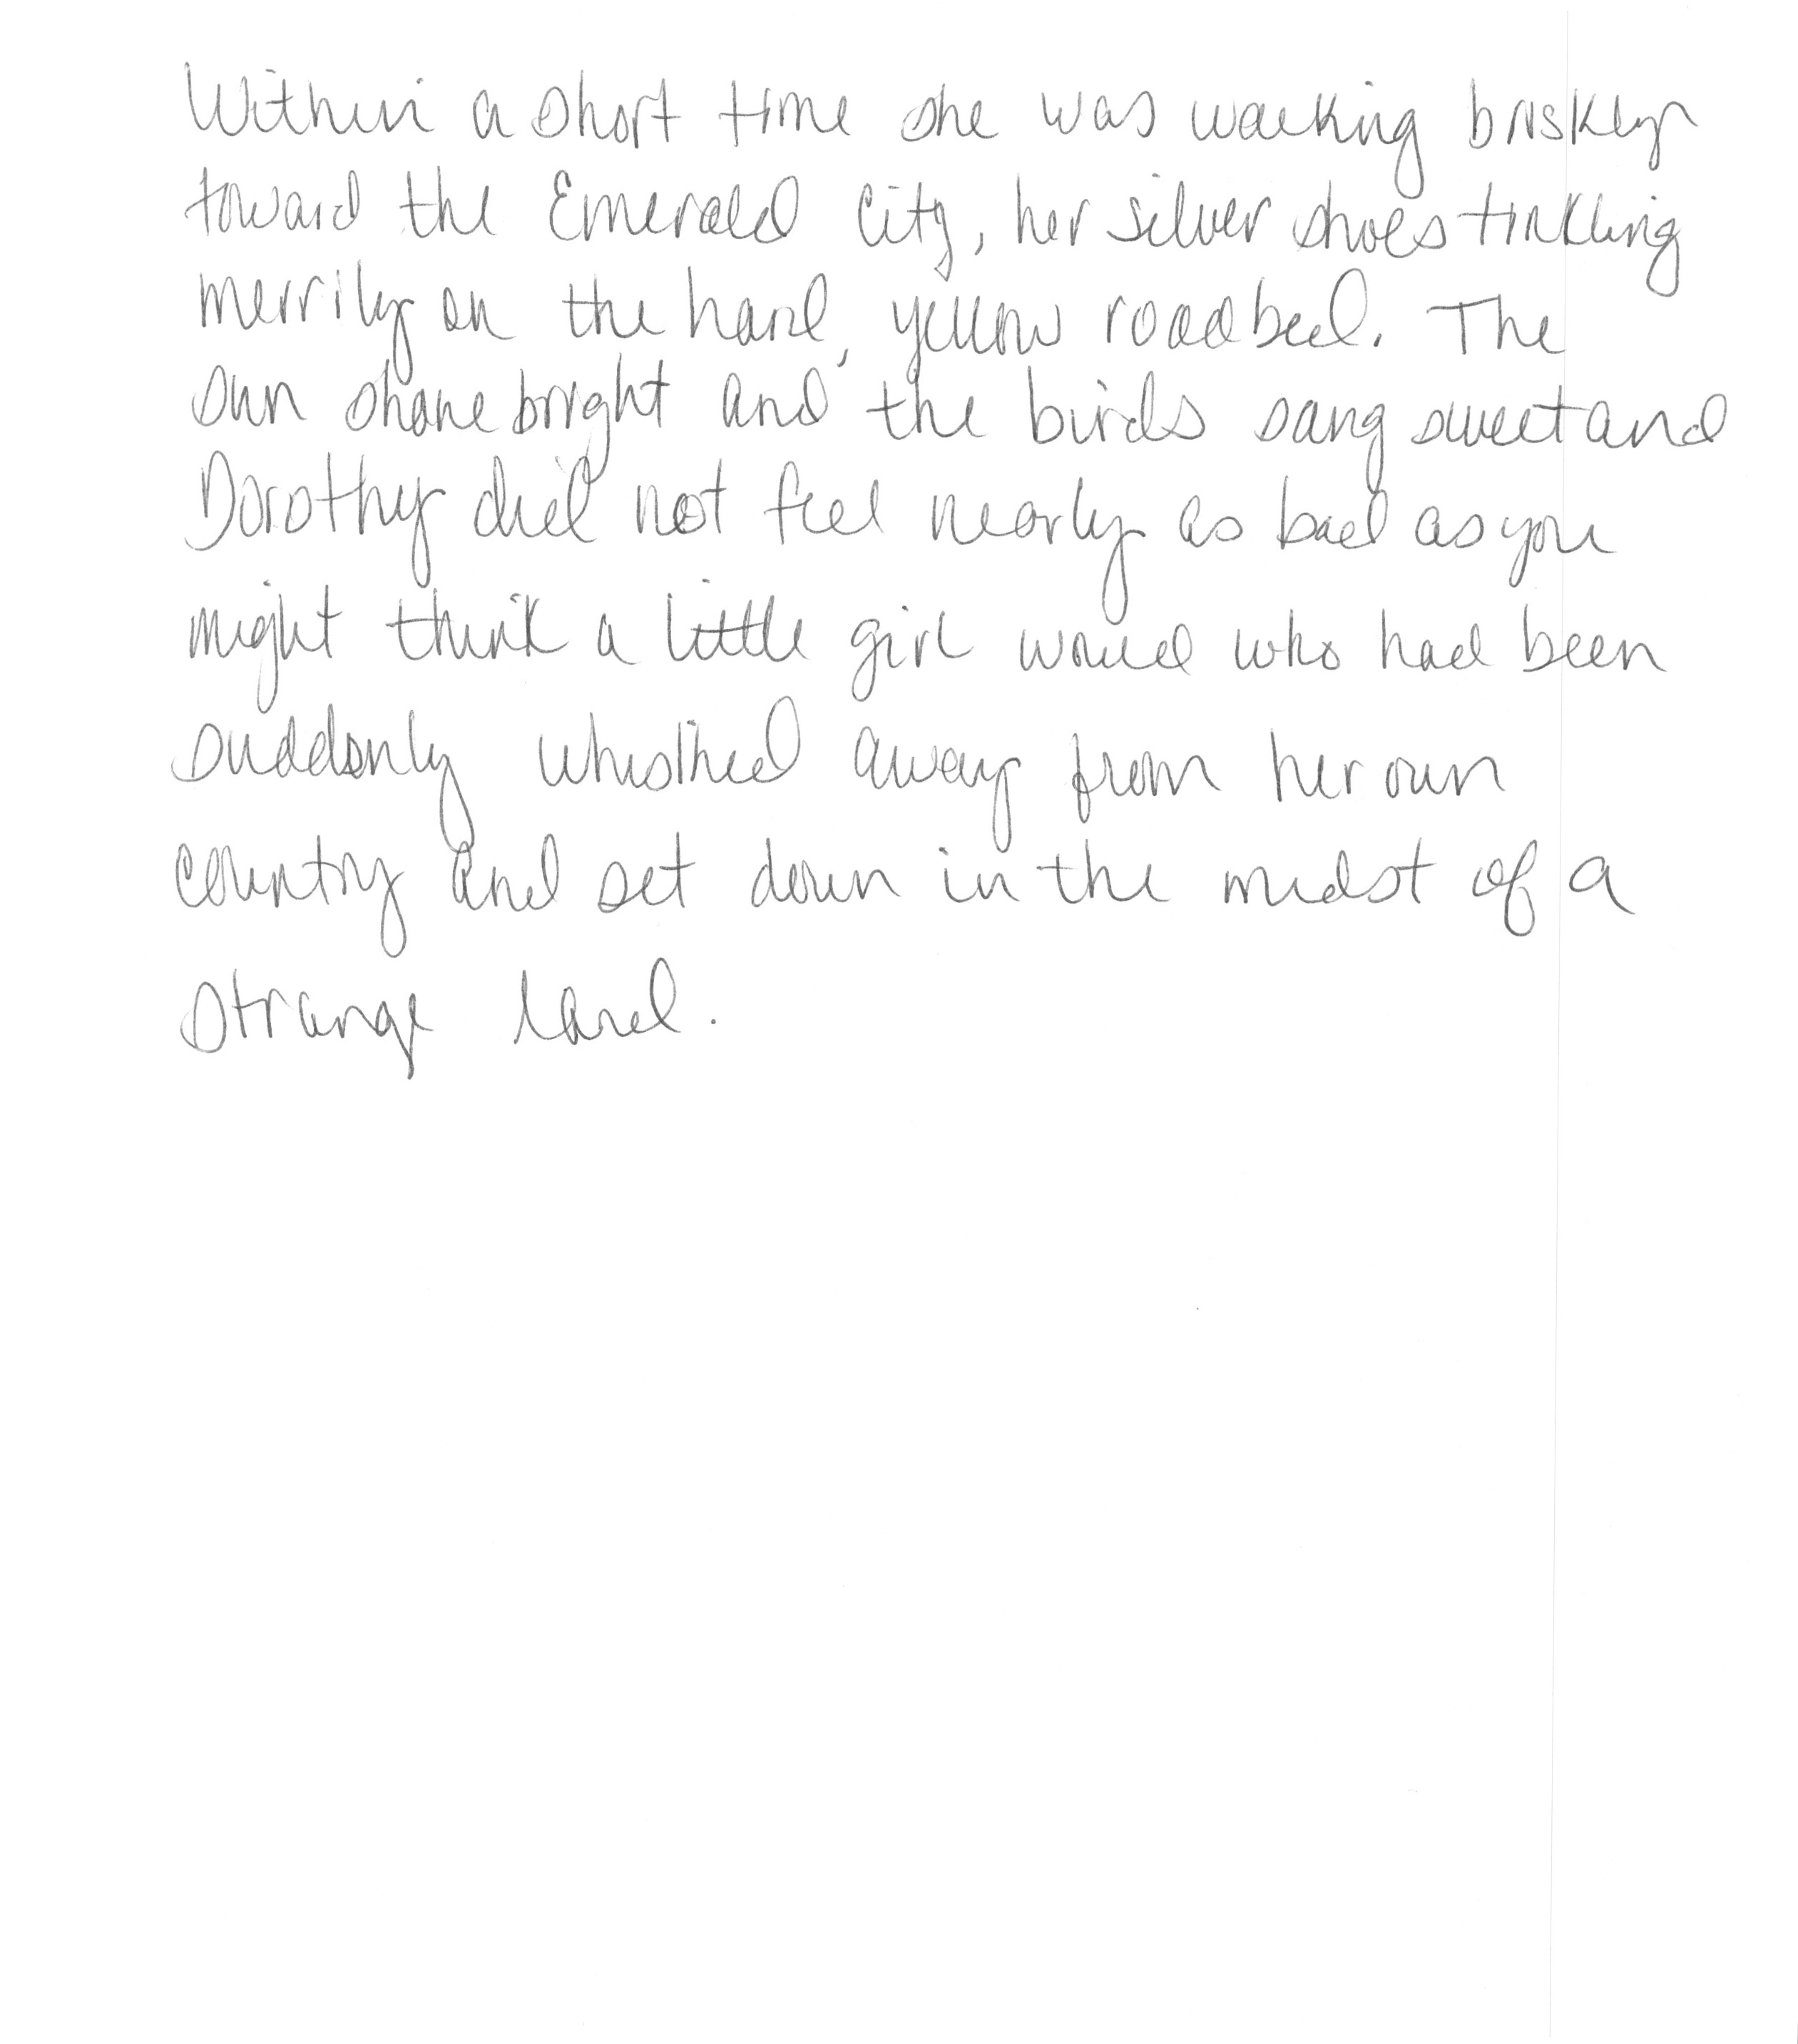 Within a short time she was walking briskly
toward the Emerald City, her silver shoes tinkling
merrily on the hard, yellow roadbed. The
sun shone bright and the birds sang sweet and
Dorothy did not feel nearly as bad as you
might think a little girl would who had been
suddenly whisked away from her own
country and set down in the midst of a
strange land.